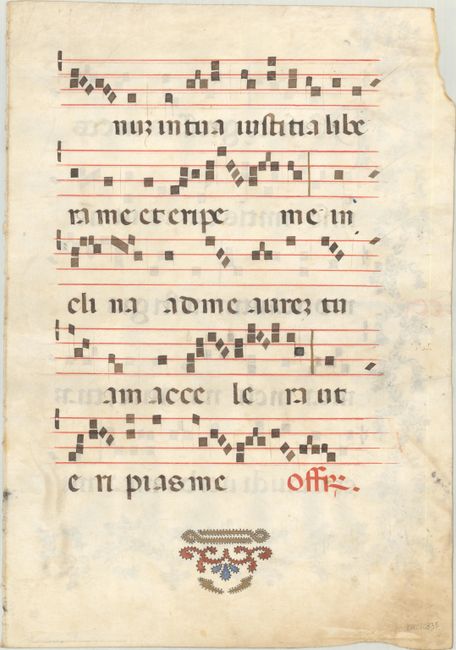 nur in tua iustitia libe
ra me et eripe me in
cli na ad me aurez tu
am acce le ra ut
e ri pias me Offr.